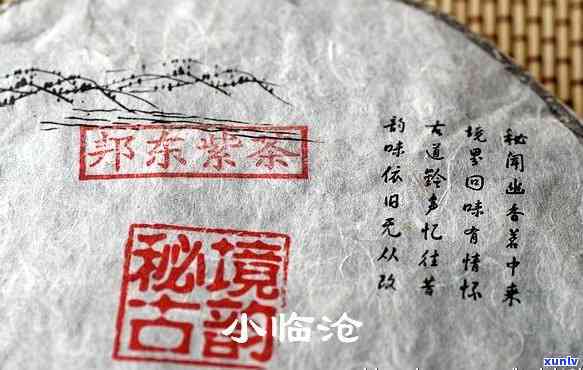 邦东紫茶
秘境
古韵
秘闻幽香茗中来
境里回味有情怀
古道铃声忆往昔
韵味依旧无从改
小临沧
xunlv